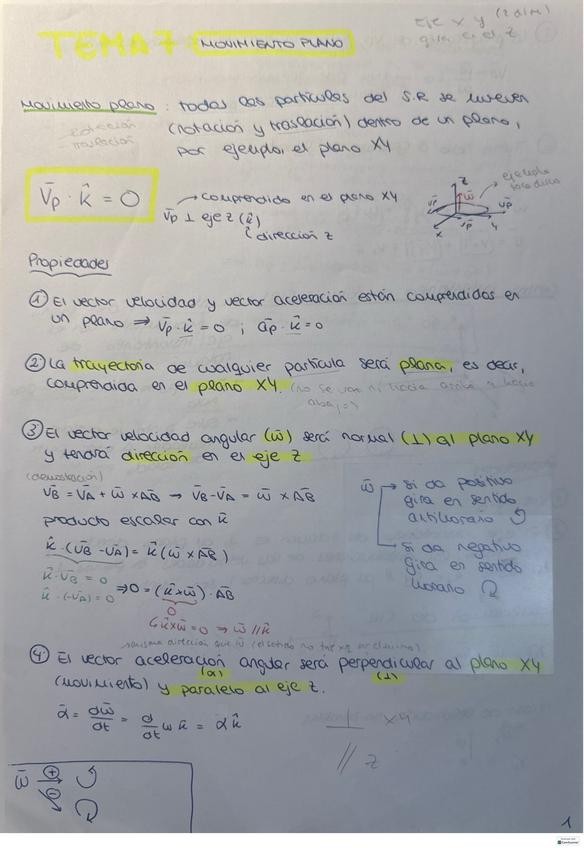 eje x y (2 dim)
gira en el z
TEMA 7: MOVIMIENTO PLANO
Movimiento plano: todas las partículas del S.R se mueven
(rotación y traslación) dentro de un plano,
rotación
traslación
por ejemplo, el plano XY
V̄p · k̂ = 0
→ comprendido en el plano XY
V̄p ⊥ eje z (k̂)
dirección z
ejemplo
z
ω̄
v̄p
v̄p
v̄p
x
y
Propiedades
① El vector velocidad y vector aceleración están comprendidos en
un plano ⇒ V̄p · k̂ = 0 ; āp · k̂ = 0
② La trayectoria de cualquier partícula será plana, es decir,
comprendida en el plano XY. (no se van ni hacia arriba ni hacia
abajo)
③ El vector velocidad angular (ω̄) será normal (⊥) al plano XY
y tendrá dirección en el eje z
(demostración)
V̄B = V̄A + ω̄ × AB → V̄B - V̄A = ω̄ × AB
producto escalar con k̂
k̂ · (V̄B - V̄A) = k̂ (ω̄ × AB)
k̂ · V̄B = 0
k̂ · (-V̄A) = 0
⇒ 0 = (k̂ × ω̄) · AB
0
k̂ × ω̄ = 0 ⇒ ω̄ // k̂
ω̄ → si da positivo
gira en sentido
antihorario ↺
→ si da negativo
gira en sentido
horario ↻
④ El vector aceleración angular será perpendicular al plano XY
(α) (⊥)
(movimiento) y paralelo al eje z.
ᾱ = dω̄/dt = d/dt ω k̂ = α k̂
⊥ XY
// z
ω̄ ⊕ ⊖
1